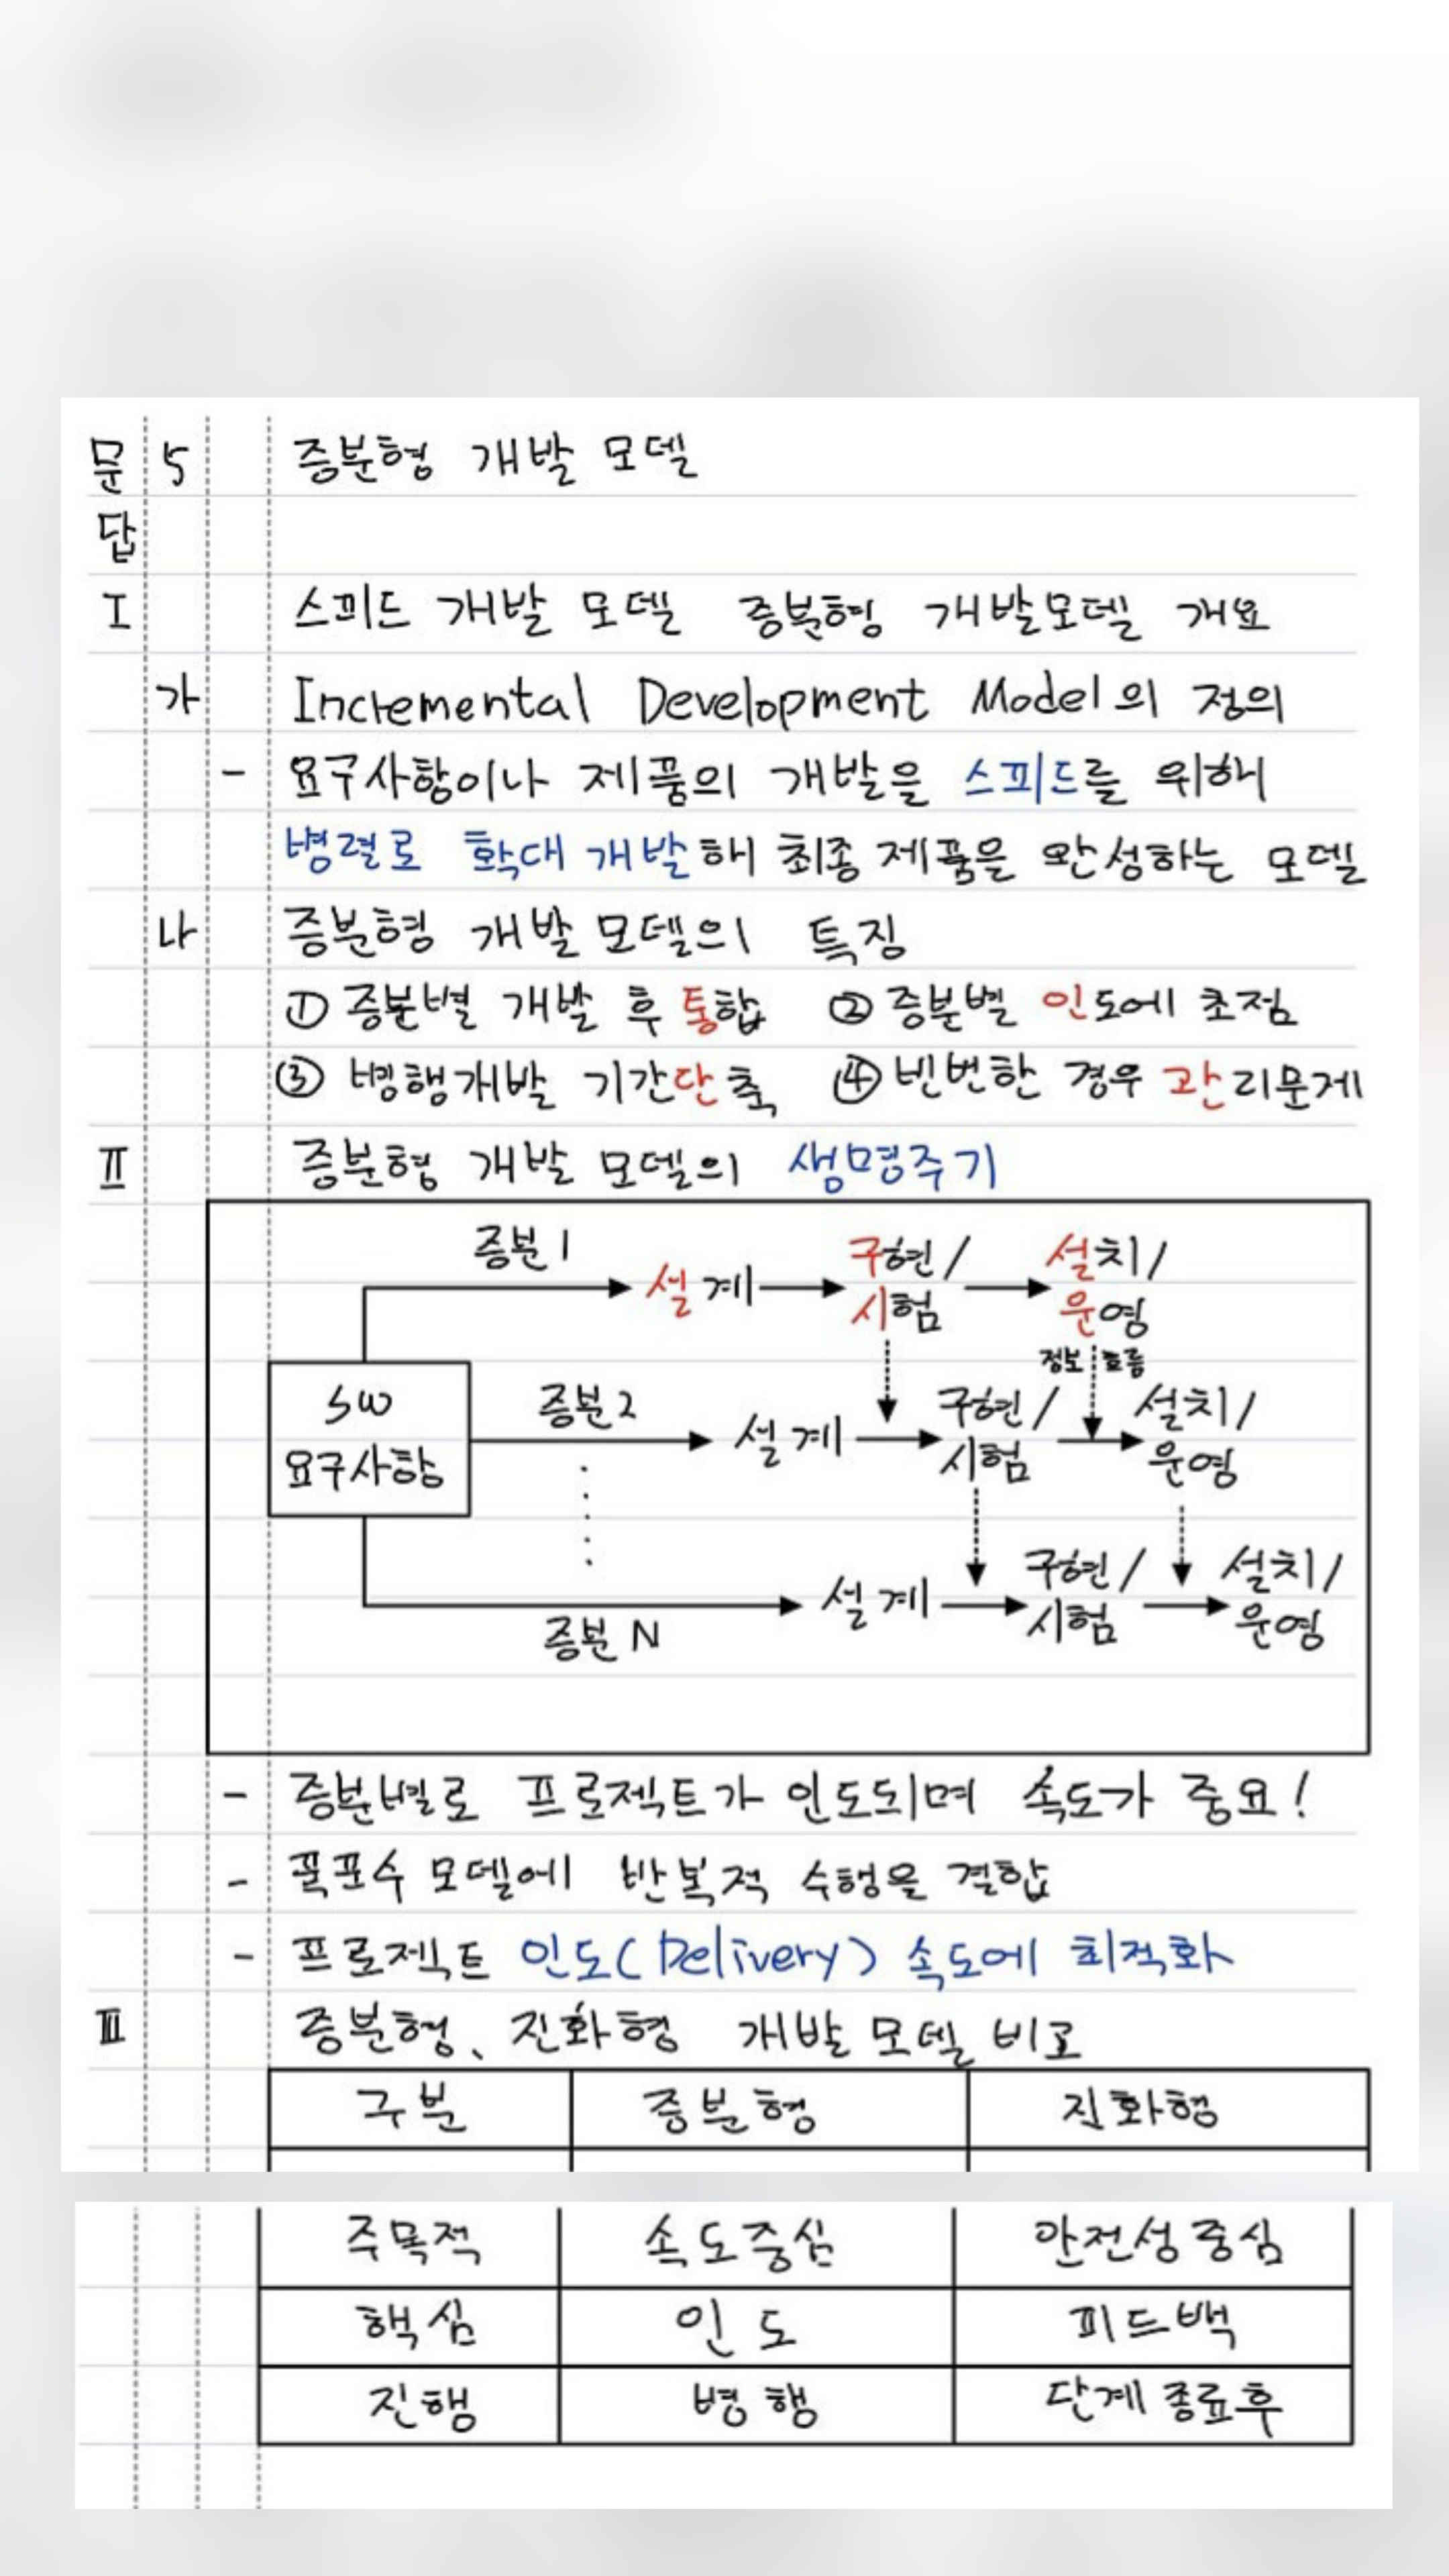 문 5 증분형 개발 모델
답
I 스피드 개발 모델 증분형 개발모델 개요
가 Incremental Development Model의 정의
- 요구사항이나 제품의 개발을 스피드를 위해
병렬로 확대 개발해 최종 제품을 완성하는 모델
나 증분형 개발 모델의 특징
① 증분별 개발 후 통합 ② 증분별 인도에 초점
③ 병행개발 기간단축 ④ 빈번한 경우 관리문제
II 증분형 개발 모델의 생명주기
증분1
설계
구현/
시험
설치/
운영
정보흐름
SW
요구사항
증분2
설계
구현/
시험
설치/
운영
증분 N
설계
구현/
시험
설치/
운영
- 증분별로 프로젝트가 인도되며 속도가 중요!
- 폭포수 모델에 반복적 수행을 결합
- 프로젝트 인도(Delivery) 속도에 최적화
III 증분형、진화형 개발 모델 비교
구분 증분형 진화형
주목적 속도중심 안전성중심
핵심 인도 피드백
진행 병행 단계 종료후